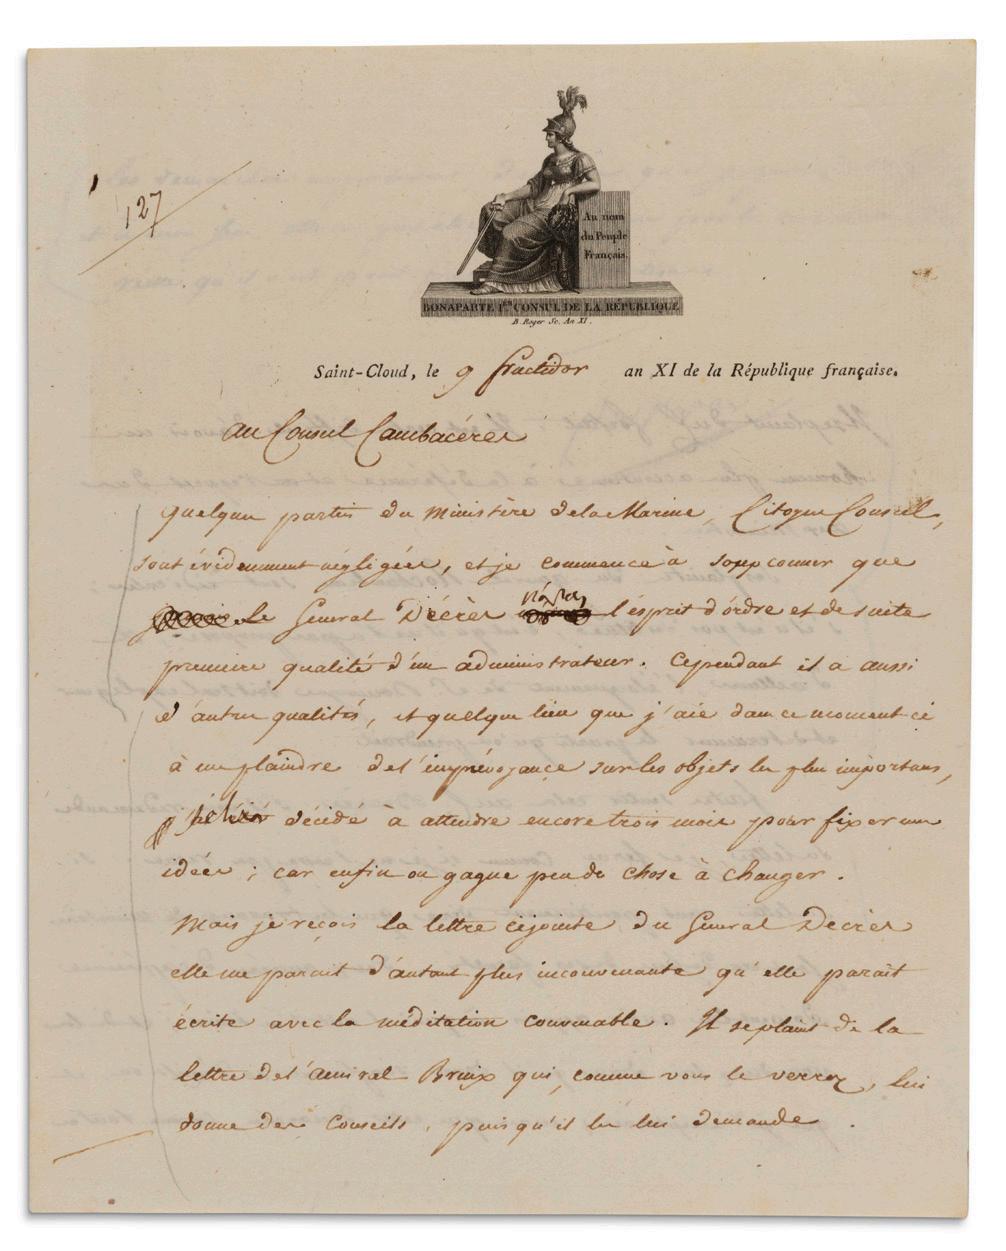 127
Au nom
du Peuple
Français.
BONAPARTE 1er CONSUL DE LA RÉPUBLIQUE
B. Roger Sc. An XI.
Saint-Cloud, le 9 fructidor an XI de la République française.
au Consul Cambacérès
quelques parties du Ministère de la Marine, Citoyen Consul,
sont évidemment négligées, et je commence à soupconner que
le General Décrès n'a pas l'esprit d'ordre et de suite
premiere qualité d'un administrateur. Cependant il a aussi
d'autres qualités, et quelque lieu que j'aie dans ce moment-ci
à me plaindre de l'imprévoyance sur les objets les plus importans,
je suis décidé à attendre encore trois mois pour fixer mes
idées; car enfin on gagne peu de chose à changer.
Mais je reçois la lettre cijointe du General Decrès
elle me parait d'autant plus inconvenante qu'elle paraît
écrite avec la méditation convenable. Il se plaint de la
lettre de l'amiral Bruix qui, comme vous le verrez, lui
donne des conseils, puisqu'il les lui demande.